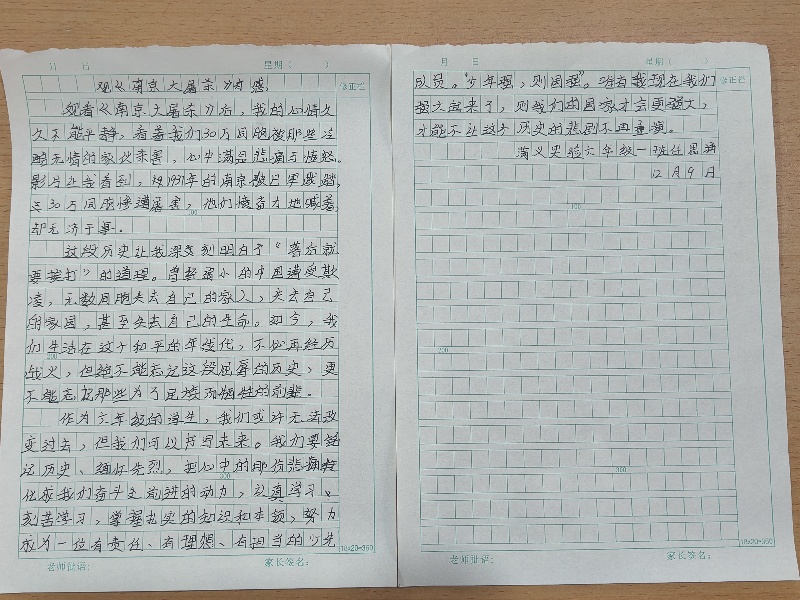 月 日 星期（ ）
观《南京大屠杀》有感
修正栏
观看《南京大屠杀》后，我的心情久
久不能平静，看着我们30万同胞被那些冷
酷无情的家伙杀害，心中满是悲痛与愤怒。
影片让我看到，在1937年的南京被日军践踏，
30万同胞惨遭屠害，他们奋力地喊着，
却无济于事。
这段历史让我深刻明白了“落后就
要挨打”的道理。曾经弱小的中国遭受欺
凌，无数同胞失去自己的家人，失去自己
的家园，甚至失去自己的生命。如今，我
们生活在这个和平的年代，不必再经历
战火，但绝不能忘记这段屈辱的历史，更
不能忘记那些为了民族而牺牲的前辈。
作为六年级的学生，我们或许无法改
变过去，但我们可以书写未来。我们要铭
记历史、缅怀先烈，把心中的那份悲痛
化成我们奋斗之前进的动力，认真学习、
刻苦学习，掌握扎实的知识和本领，努力
成为一位有责任、有理想、有担当的少先
100
200
(18×20=360
老师批语： 家长签名：
月 日 星期（ ）
修正栏
队员。“少年强，则国强”。唯有我现在我们
强大起来了，则我们的国家才会更强大，
才能不让这个历史的悲剧不再重演。
满义实验六年级一班任思
12月9日
100
200
300
(18×20=360
老师批语： 家长签名：